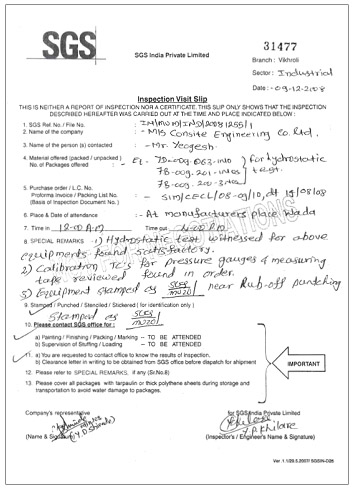 SGS
SGS India Private Limited
31477
Branch : Vikhroli
Sector : Industrial
Date :- 09-12-2008
Inspection Visit Slip
THIS IS NEITHER A REPORT OF INSPECTION NOR A CERTIFICATE. THIS SLIP ONLY SHOWS THAT THE INSPECTION
DESCRIBED HEREUNDER WAS CARRIED OUT AT THE TIME AND PLACE INDICATED BELOW :
1. SGS Ref. No. / File No. :
2. Name of the company : - M/s Consite Engineering Co. Ltd.
3. Name of the person (a) contacted : - Mr. Yogesh.
4. Material offered (packed / unpacked)
No. of Packages offered : for hydrostatic
test.
5. Purchase order / L.C. No.
Proforma Invoice / Packing List No. : - SIM/CECL/08-09/10, dt
(Basis of Inspection Document No.)
6. Place & Date of attendance : - At manufacturers place Wada
7. Time in 12-00 P.M Time out
8. SPECIAL REMARKS 1) Hydrostatic test witnessed for above
equipments found satisfactory.
2) Calibration TC's for pressure gauges & measuring
tape reviewed found in order.
3) Equipment stamped as SGS near Rub-off punching
9. Stamped / Punched / Stencilled / Stickered ( for identification only )
Stamped as SGS
10. Please contact SGS office for :
a) Painting / Finishing / Packing / Marking - TO BE ATTENDED
b) Supervision of Stuffing / Loading - TO BE ATTENDED
11. a) You are requested to contact office to know the results of inspection.
b) Clearance letter in writing to be obtained from SGS office before dispatch for shipment
IMPORTANT
12. Please refer to SPECIAL REMARKS, if any (Sr.No.8)
13. Please cover all packages with tarpaulin or thick polythene sheets during storage and
transportation to avoid water damage to packages.
Company's representative
for SGS India Private Limited
(Name & Signature)
(Inspector's / Engineer's Name & Signature)